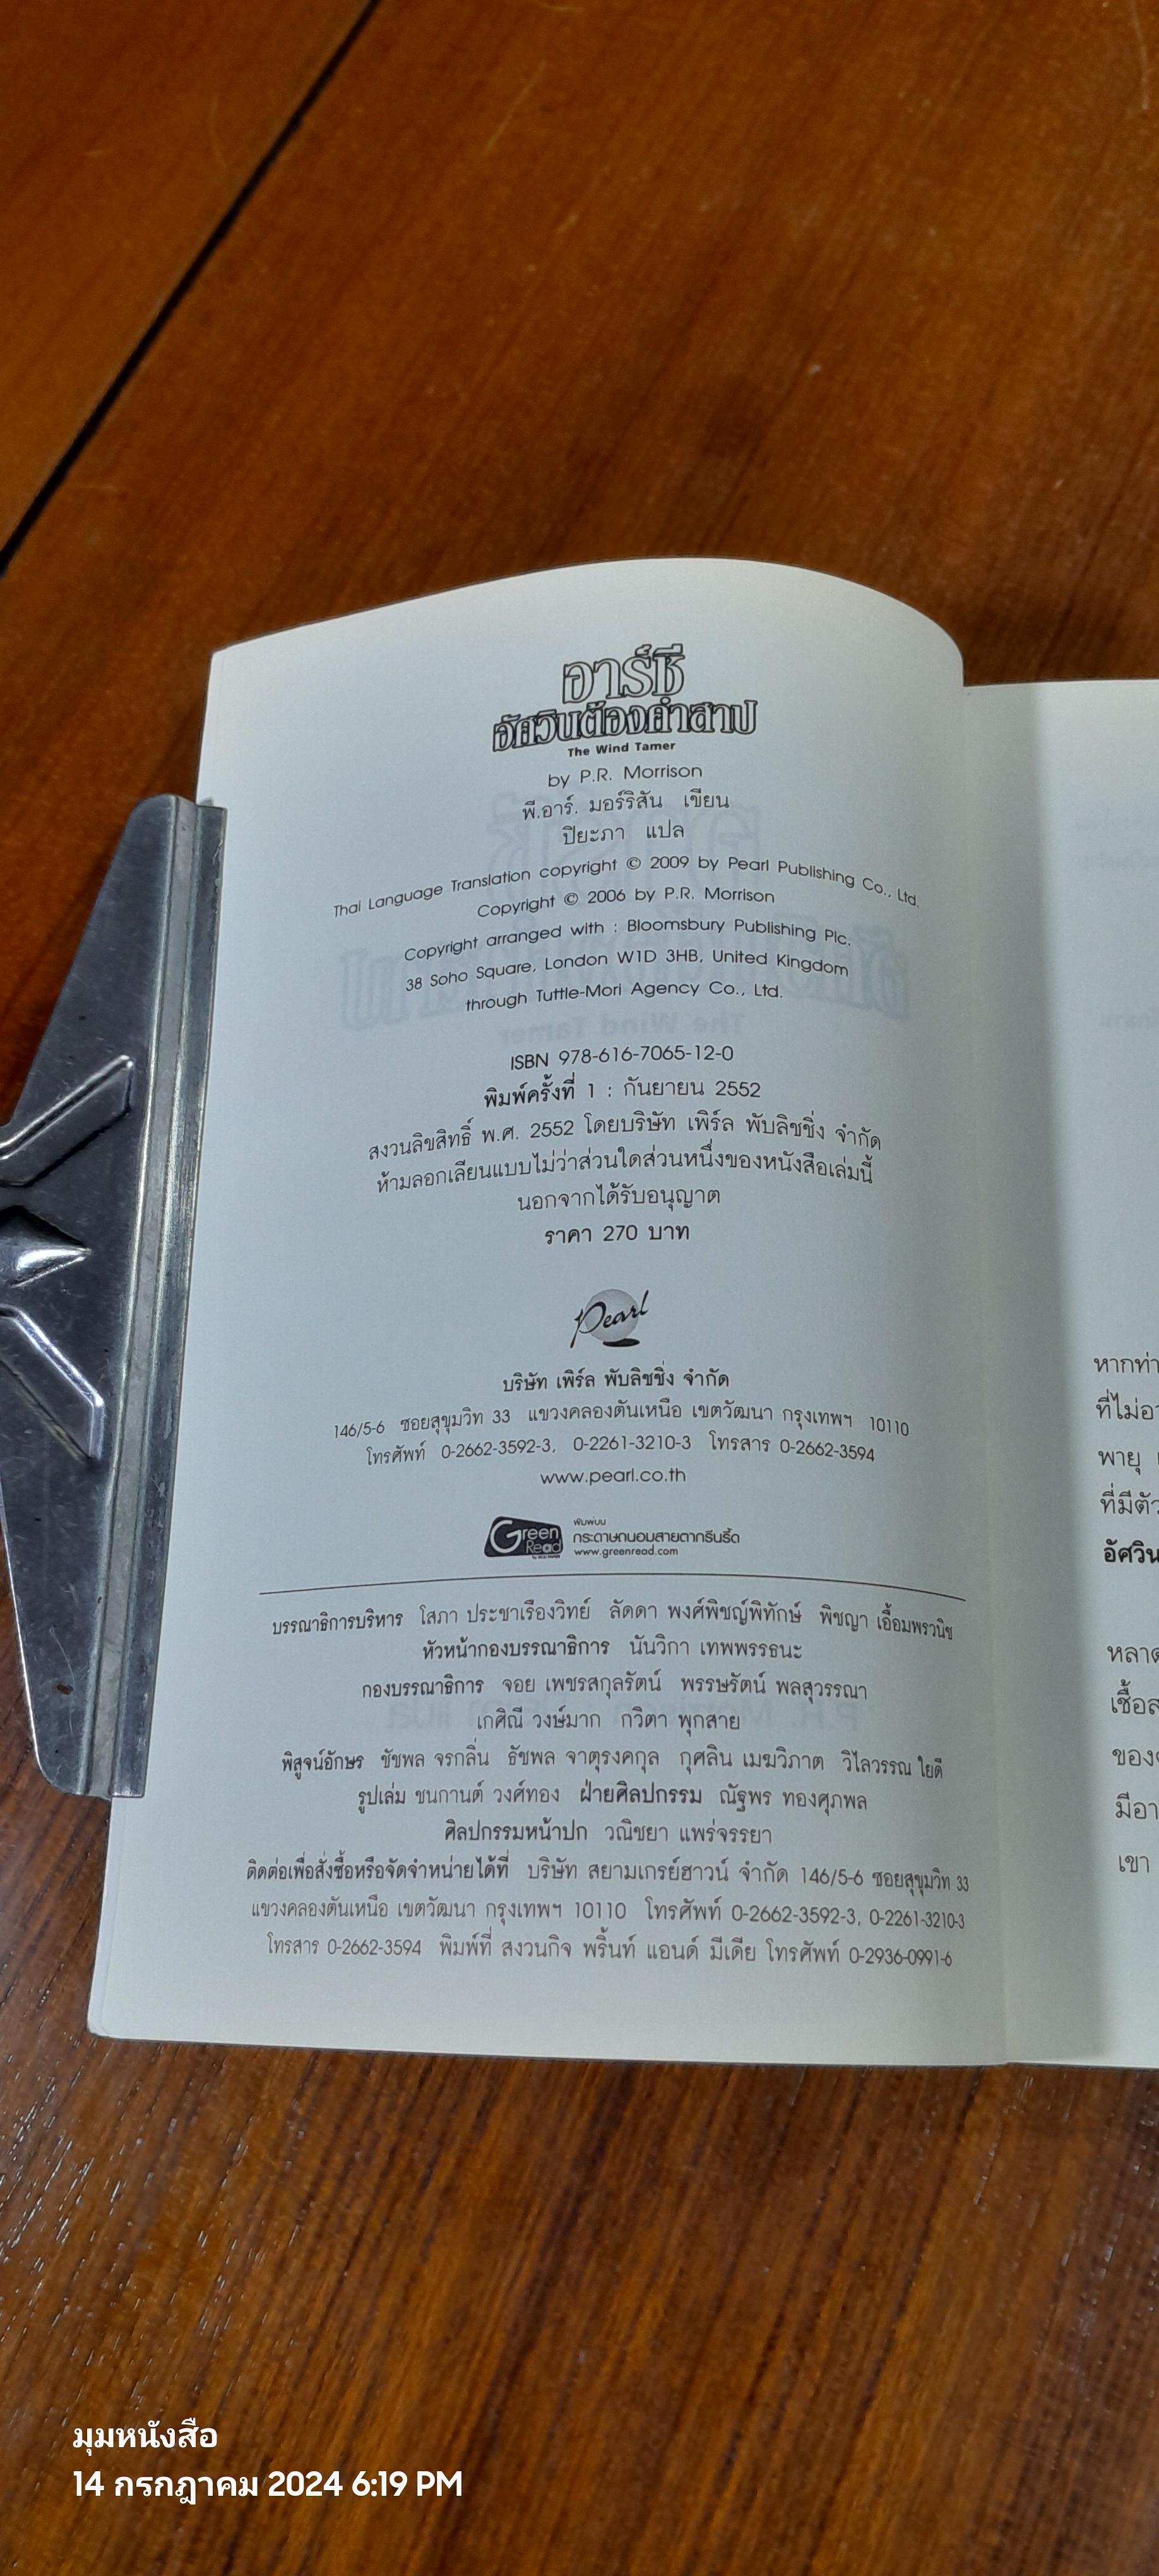 อาร์ชี
อัศวินต้องคำสาป
The Wind Tamer
by P.R. Morrison
พี.อาร์. มอร์ริสัน เขียน
ปิยะภา แปล
Thai Language Translation copyright © 2009 by Pearl Publishing Co., Ltd.
Copyright © 2006 by P.R. Morrison
Copyright arranged with : Bloomsbury Publishing Plc.
38 Soho Square, London W1D 3HB, United Kingdom
through Tuttle-Mori Agency Co., Ltd.
ISBN 978-616-7065-12-0
พิมพ์ครั้งที่ 1 : กันยายน 2552
สงวนลิขสิทธิ์ พ.ศ. 2552 โดยบริษัท เพิร์ล พับลิชชิ่ง จำกัด
ห้ามลอกเลียนแบบไม่ว่าส่วนใดส่วนหนึ่งของหนังสือเล่มนี้
นอกจากได้รับอนุญาต
ราคา 270 บาท
Pearl
บริษัท เพิร์ล พับลิชชิ่ง จำกัด
146/5-6 ซอยสุขุมวิท 33 แขวงคลองตันเหนือ เขตวัฒนา กรุงเทพฯ 10110
โทรศัพท์ 0-2662-3592-3, 0-2261-3210-3 โทรสาร 0-2662-3594
www.pearl.co.th
Green Read
พิมพ์บน
กระดาษถนอมสายตากรีนรี้ด
www.greenread.com
บรรณาธิการบริหาร โสภา ประชาเรืองวิทย์ ลัดดา พงศ์พิชญ์พิทักษ์ พิชญา เอื้อมพรวนิช
หัวหน้ากองบรรณาธิการ นันวิกา เทพพรรธนะ
กองบรรณาธิการ จอย เพชรสกุลรัตน์ พรรษรัตน์ พลสุวรรณา
เกศิณี วงษ์มาก กวิตา พุกสาย
พิสูจน์อักษร ชัชพล จรกลิ่น ธัชพล จาตุรงคกุล กุศลิน เมฆวิภาต วิไลวรรณ ใยดี
รูปเล่ม ชนกานต์ วงศ์ทอง ฝ่ายศิลปกรรม ณัฐพร ทองศุภพล
ศิลปกรรมหน้าปก วณิชยา แพร่จรรยา
ติดต่อเพื่อสั่งซื้อหรือจัดจำหน่ายได้ที่ บริษัท สยามเกรย์ฮาวน์ จำกัด 146/5-6 ซอยสุขุมวิท 33
แขวงคลองตันเหนือ เขตวัฒนา กรุงเทพฯ 10110 โทรศัพท์ 0-2662-3592-3, 0-2261-3210-3
โทรสาร 0-2662-3594 พิมพ์ที่ สงวนกิจ พริ้นท์ แอนด์ มีเดีย โทรศัพท์ 0-2936-0991-6
หากท่า
ที่ไม่อา
พายุ
ที่มีตัว
อัศวิน
หลาด
เชื้อส
ของ
มีอา
เขา
มุมหนังสือ
14 กรกฎาคม 2024 6:19 PM